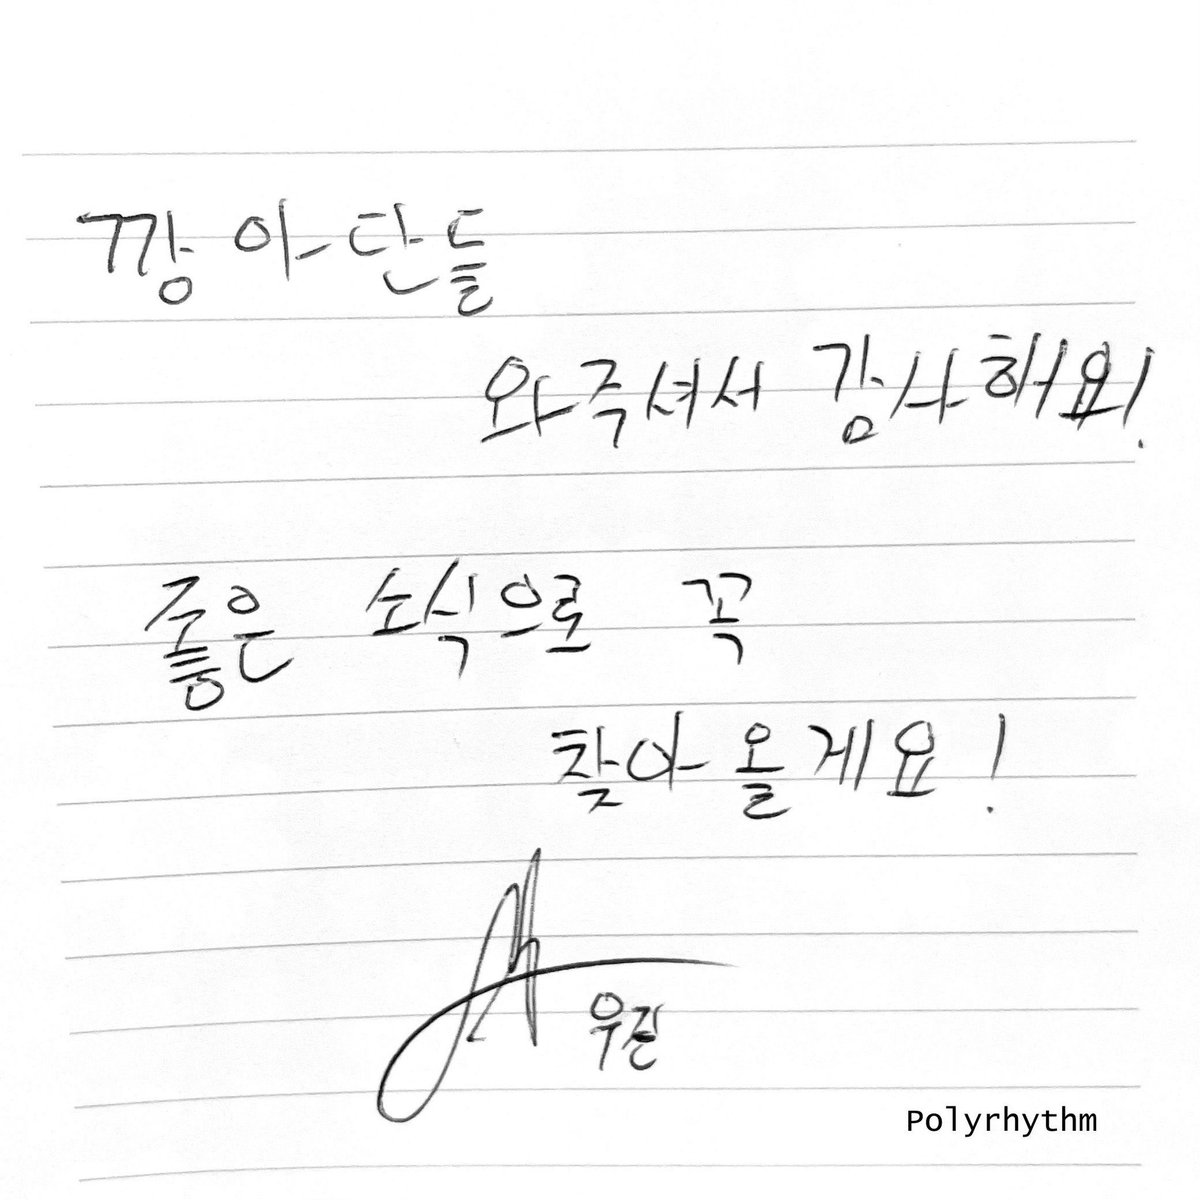 깡아단들
와주셔서 감사해요!
좋은 소식으로 꼭
찾아올게요!
우진
Polyrhythm